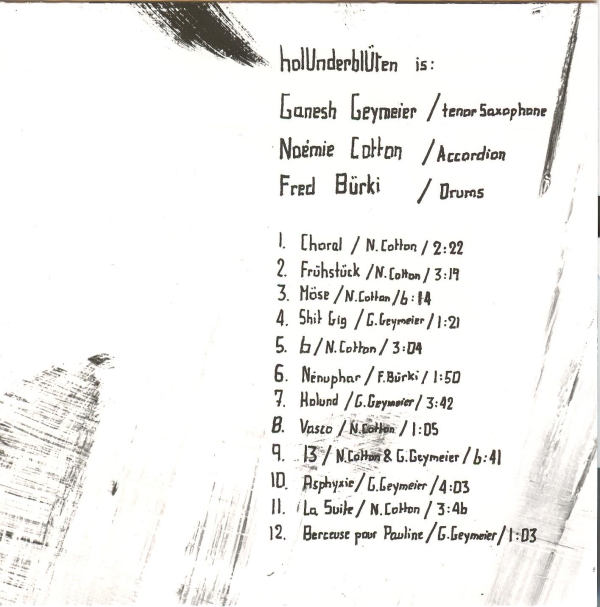 holUnderblÜten is:
Ganesh Geymeier / tenor Saxophone
Noémie Cotton / Accordion
Fred Bürki / Drums
1. Choral / N.Cotton / 2:22
2. Frühstück / N.Cotton / 3:19
3. Möse / N.Cotton / 6:14
4. Shit Gig / G.Geymeier / 1:21
5. 6 / N.Cotton / 3:04
6. Nénuphar / F.Bürki / 1:50
7. Holund / G.Geymeier / 3:42
8. Vasco / N.Cotton / 1:05
9. 13 / N.Cotton & G.Geymeier / 6:41
10. Asphyxie / G.Geymeier / 4:03
11. La Suite / N.Cotton / 3:46
12. Berceuse pour Pauline / G.Geymeier / 1:03